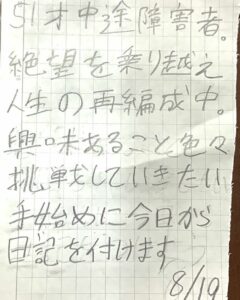 51才中途障害者。
絶望を乗り越え
人生の再編成中。
興味あること色々
挑戦していきたい
手始めに今日から
日記を付けます
8/19